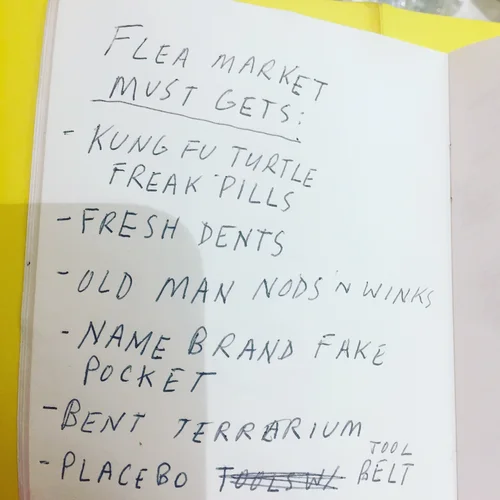 FLEA MARKET
MUST GETS:
- KUNG FU TURTLE
FREAK PILLS
- FRESH DENTS
- OLD MAN NODS 'N WINKS
- NAME BRAND FAKE
POCKET
- BENT TERRARIUM
- PLACEBO TOOLS W/ TOOL BELT